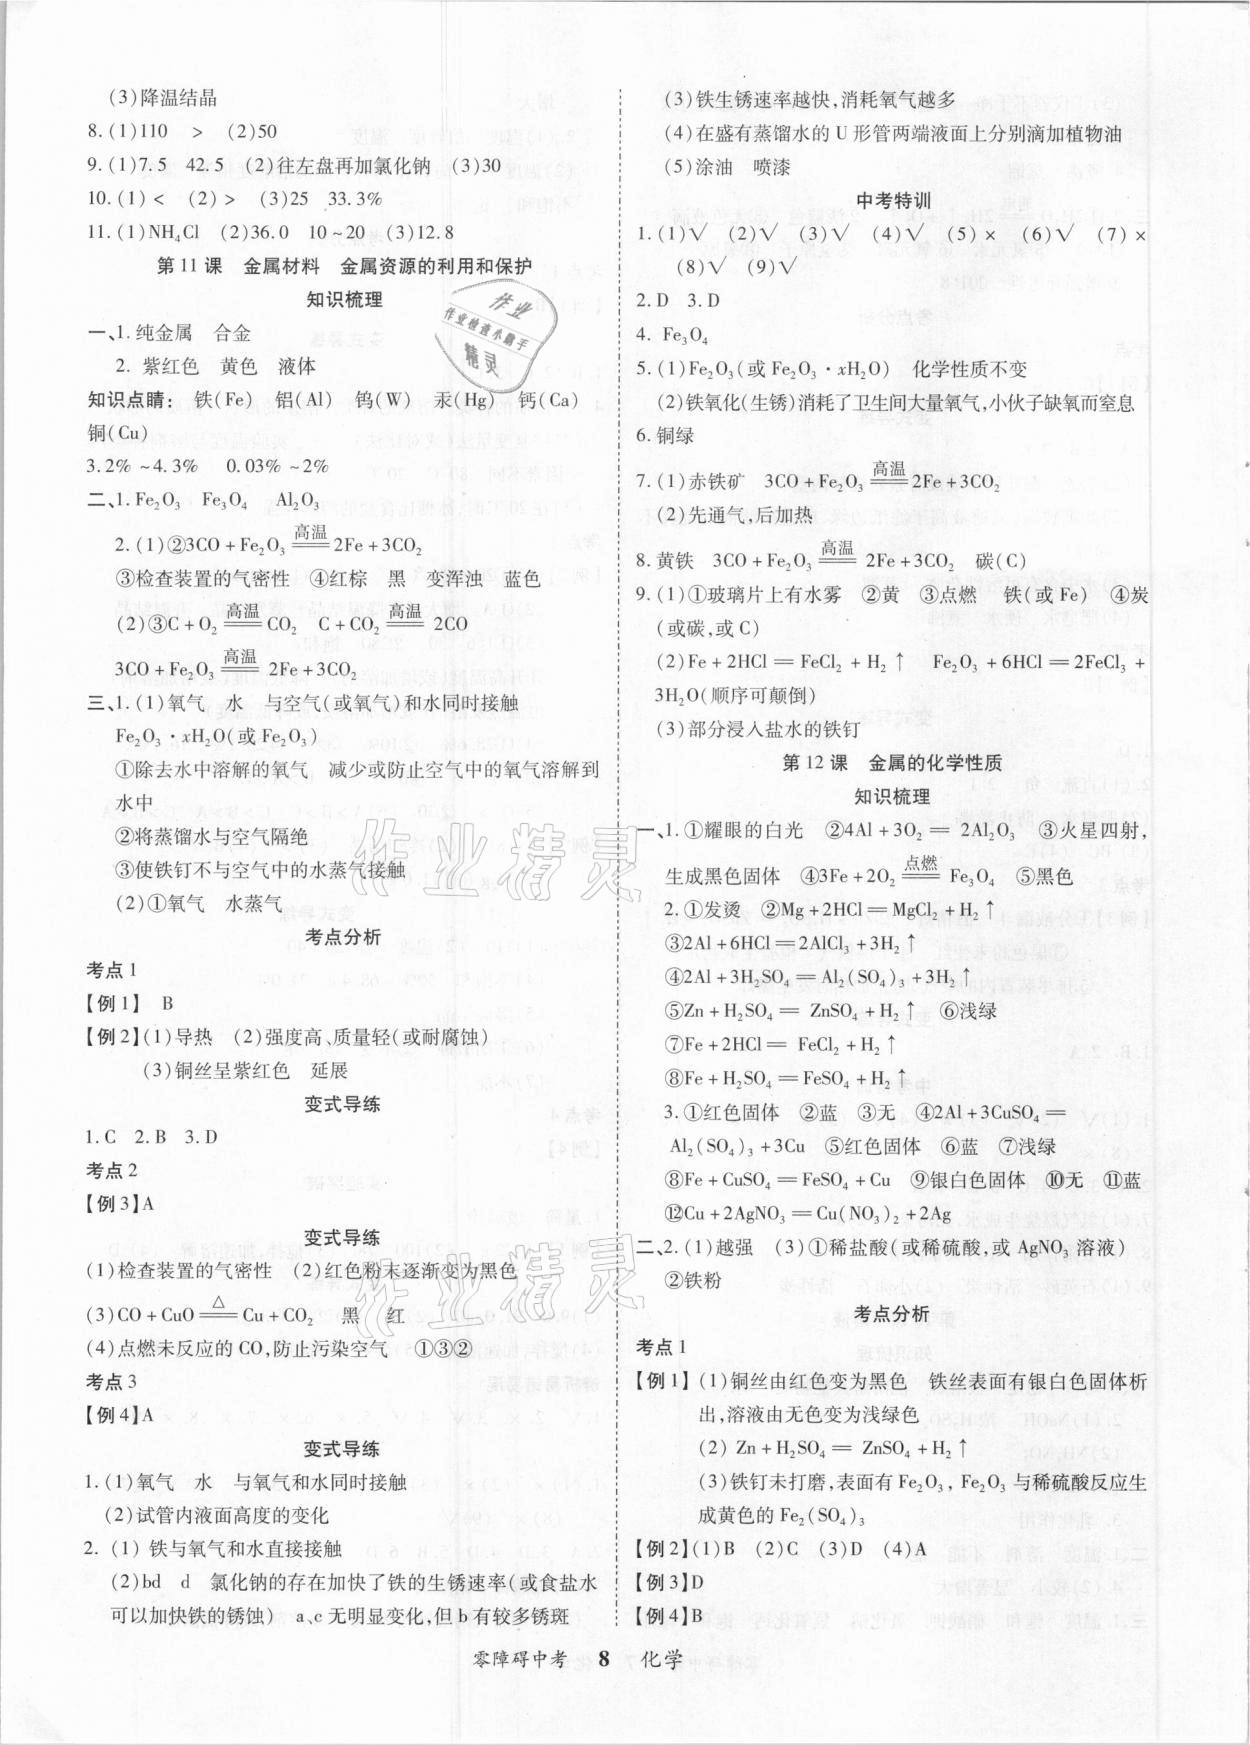 (3)降温结晶
8. (1)110　>　(2)50
9. (1)7.5　42.5　(2)往左盘再加氯化钠　(3)30
10. (1)<　(2)>　(3)25　33.3%
11. (1)NH₄Cl　(2)36.0　10~20　(3)12.8
第 11 课　金属材料　金属资源的利用和保护
知识梳理
一、1. 纯金属　合金
2. 紫红色　黄色　液体
知识点睛：　铁(Fe)　铝(Al)　钨(W)　汞(Hg)　钙(Ca)
铜(Cu)
3. 2% ~4.3%　0.03% ~2%
二、1. Fe₂O₃　Fe₃O₄　Al₂O₃
2. (1)②3CO + Fe₂O₃ =高温= 2Fe + 3CO₂
③检查装置的气密性　④红棕　黑　变浑浊　蓝色
(2)③C + O₂ =高温= CO₂　C + CO₂ =高温= 2CO
3CO + Fe₂O₃ =高温= 2Fe + 3CO₂
三、1. (1)氧气　水　与空气(或氧气)和水同时接触
Fe₂O₃ · xH₂O(或 Fe₂O₃)
①除去水中溶解的氧气　减少或防止空气中的氧气溶解到
水中
②将蒸馏水与空气隔绝
③使铁钉不与空气中的水蒸气接触
(2)①氧气　水蒸气
考点分析
考点 1
【例 1】　B
【例 2】(1)导热　(2)强度高、质量轻(或耐腐蚀)
(3)铜丝呈紫红色　延展
变式导练
1. C　2. B　3. D
考点 2
【例 3】A
变式导练
(1)检查装置的气密性　(2)红色粉末逐渐变为黑色
(3)CO + CuO =△= Cu + CO₂　黑　红
(4)点燃未反应的 CO,防止污染空气　①③②
考点 3
【例 4】A
变式导练
1. (1)氧气　水　与氧气和水同时接触
(2)试管内液面高度的变化
2. (1) 铁与氧气和水直接接触
(2)bd　d　氯化钠的存在加快了铁的生锈速率(或食盐水
可以加快铁的锈蚀)　a、c 无明显变化,但 b 有较多锈斑
(3)铁生锈速率越快,消耗氧气越多
(4)在盛有蒸馏水的 U 形管两端液面上分别滴加植物油
(5)涂油　喷漆
中考特训
1. (1)√　(2)√　(3)√　(4)√　(5)×　(6)√　(7)×
(8)√　(9)√
2. D　3. D
4. Fe₃O₄
5. (1)Fe₂O₃(或 Fe₂O₃ · xH₂O)　化学性质不变
(2)铁氧化(生锈)消耗了卫生间大量氧气,小伙子缺氧而窒息
6. 铜绿
7. (1)赤铁矿　3CO + Fe₂O₃ =高温= 2Fe + 3CO₂
(2)先通气,后加热
8. 黄铁　3CO + Fe₂O₃ =高温= 2Fe + 3CO₂　碳(C)
9. (1)①玻璃片上有水雾　②黄　③点燃　铁(或 Fe)　④炭
(或碳,或 C)
(2)Fe + 2HCl = FeCl₂ + H₂↑　Fe₂O₃ + 6HCl = 2FeCl₃ +
3H₂O(顺序可颠倒)
(3)部分浸入盐水的铁钉
第 12 课　金属的化学性质
知识梳理
一、1. ①耀眼的白光　②4Al + 3O₂ = 2Al₂O₃　③火星四射,
生成黑色固体　④3Fe + 2O₂ =点燃= Fe₃O₄　⑤黑色
2. ①发烫　②Mg + 2HCl = MgCl₂ + H₂↑
③2Al + 6HCl = 2AlCl₃ + 3H₂↑
④2Al + 3H₂SO₄ = Al₂(SO₄)₃ + 3H₂↑
⑤Zn + H₂SO₄ = ZnSO₄ + H₂↑　⑥浅绿
⑦Fe + 2HCl = FeCl₂ + H₂↑
⑧Fe + H₂SO₄ = FeSO₄ + H₂↑
3. ①红色固体　②蓝　③无　④2Al + 3CuSO₄ =
Al₂(SO₄)₃ + 3Cu　⑤红色固体　⑥蓝　⑦浅绿
⑧Fe + CuSO₄ = FeSO₄ + Cu　⑨银白色固体　⑩无　⑪蓝
⑫Cu + 2AgNO₃ = Cu(NO₃)₂ + 2Ag
二、2. (1)越强　(3)①稀盐酸(或稀硫酸,或 AgNO₃ 溶液)
②铁粉
考点分析
考点 1
【例 1】　(1)铜丝由红色变为黑色　铁丝表面有银白色固体析
出,溶液由无色变为浅绿色
(2) Zn + H₂SO₄ = ZnSO₄ + H₂↑
(3)铁钉未打磨,表面有 Fe₂O₃, Fe₂O₃ 与稀硫酸反应生
成黄色的 Fe₂(SO₄)₃
【例 2】(1)B　(2)C　(3)D　(4)A
【例 3】D
【例 4】B
零障碍中考　8　化学
作业
作业检查小助手
精灵
作业精灵
作业精灵